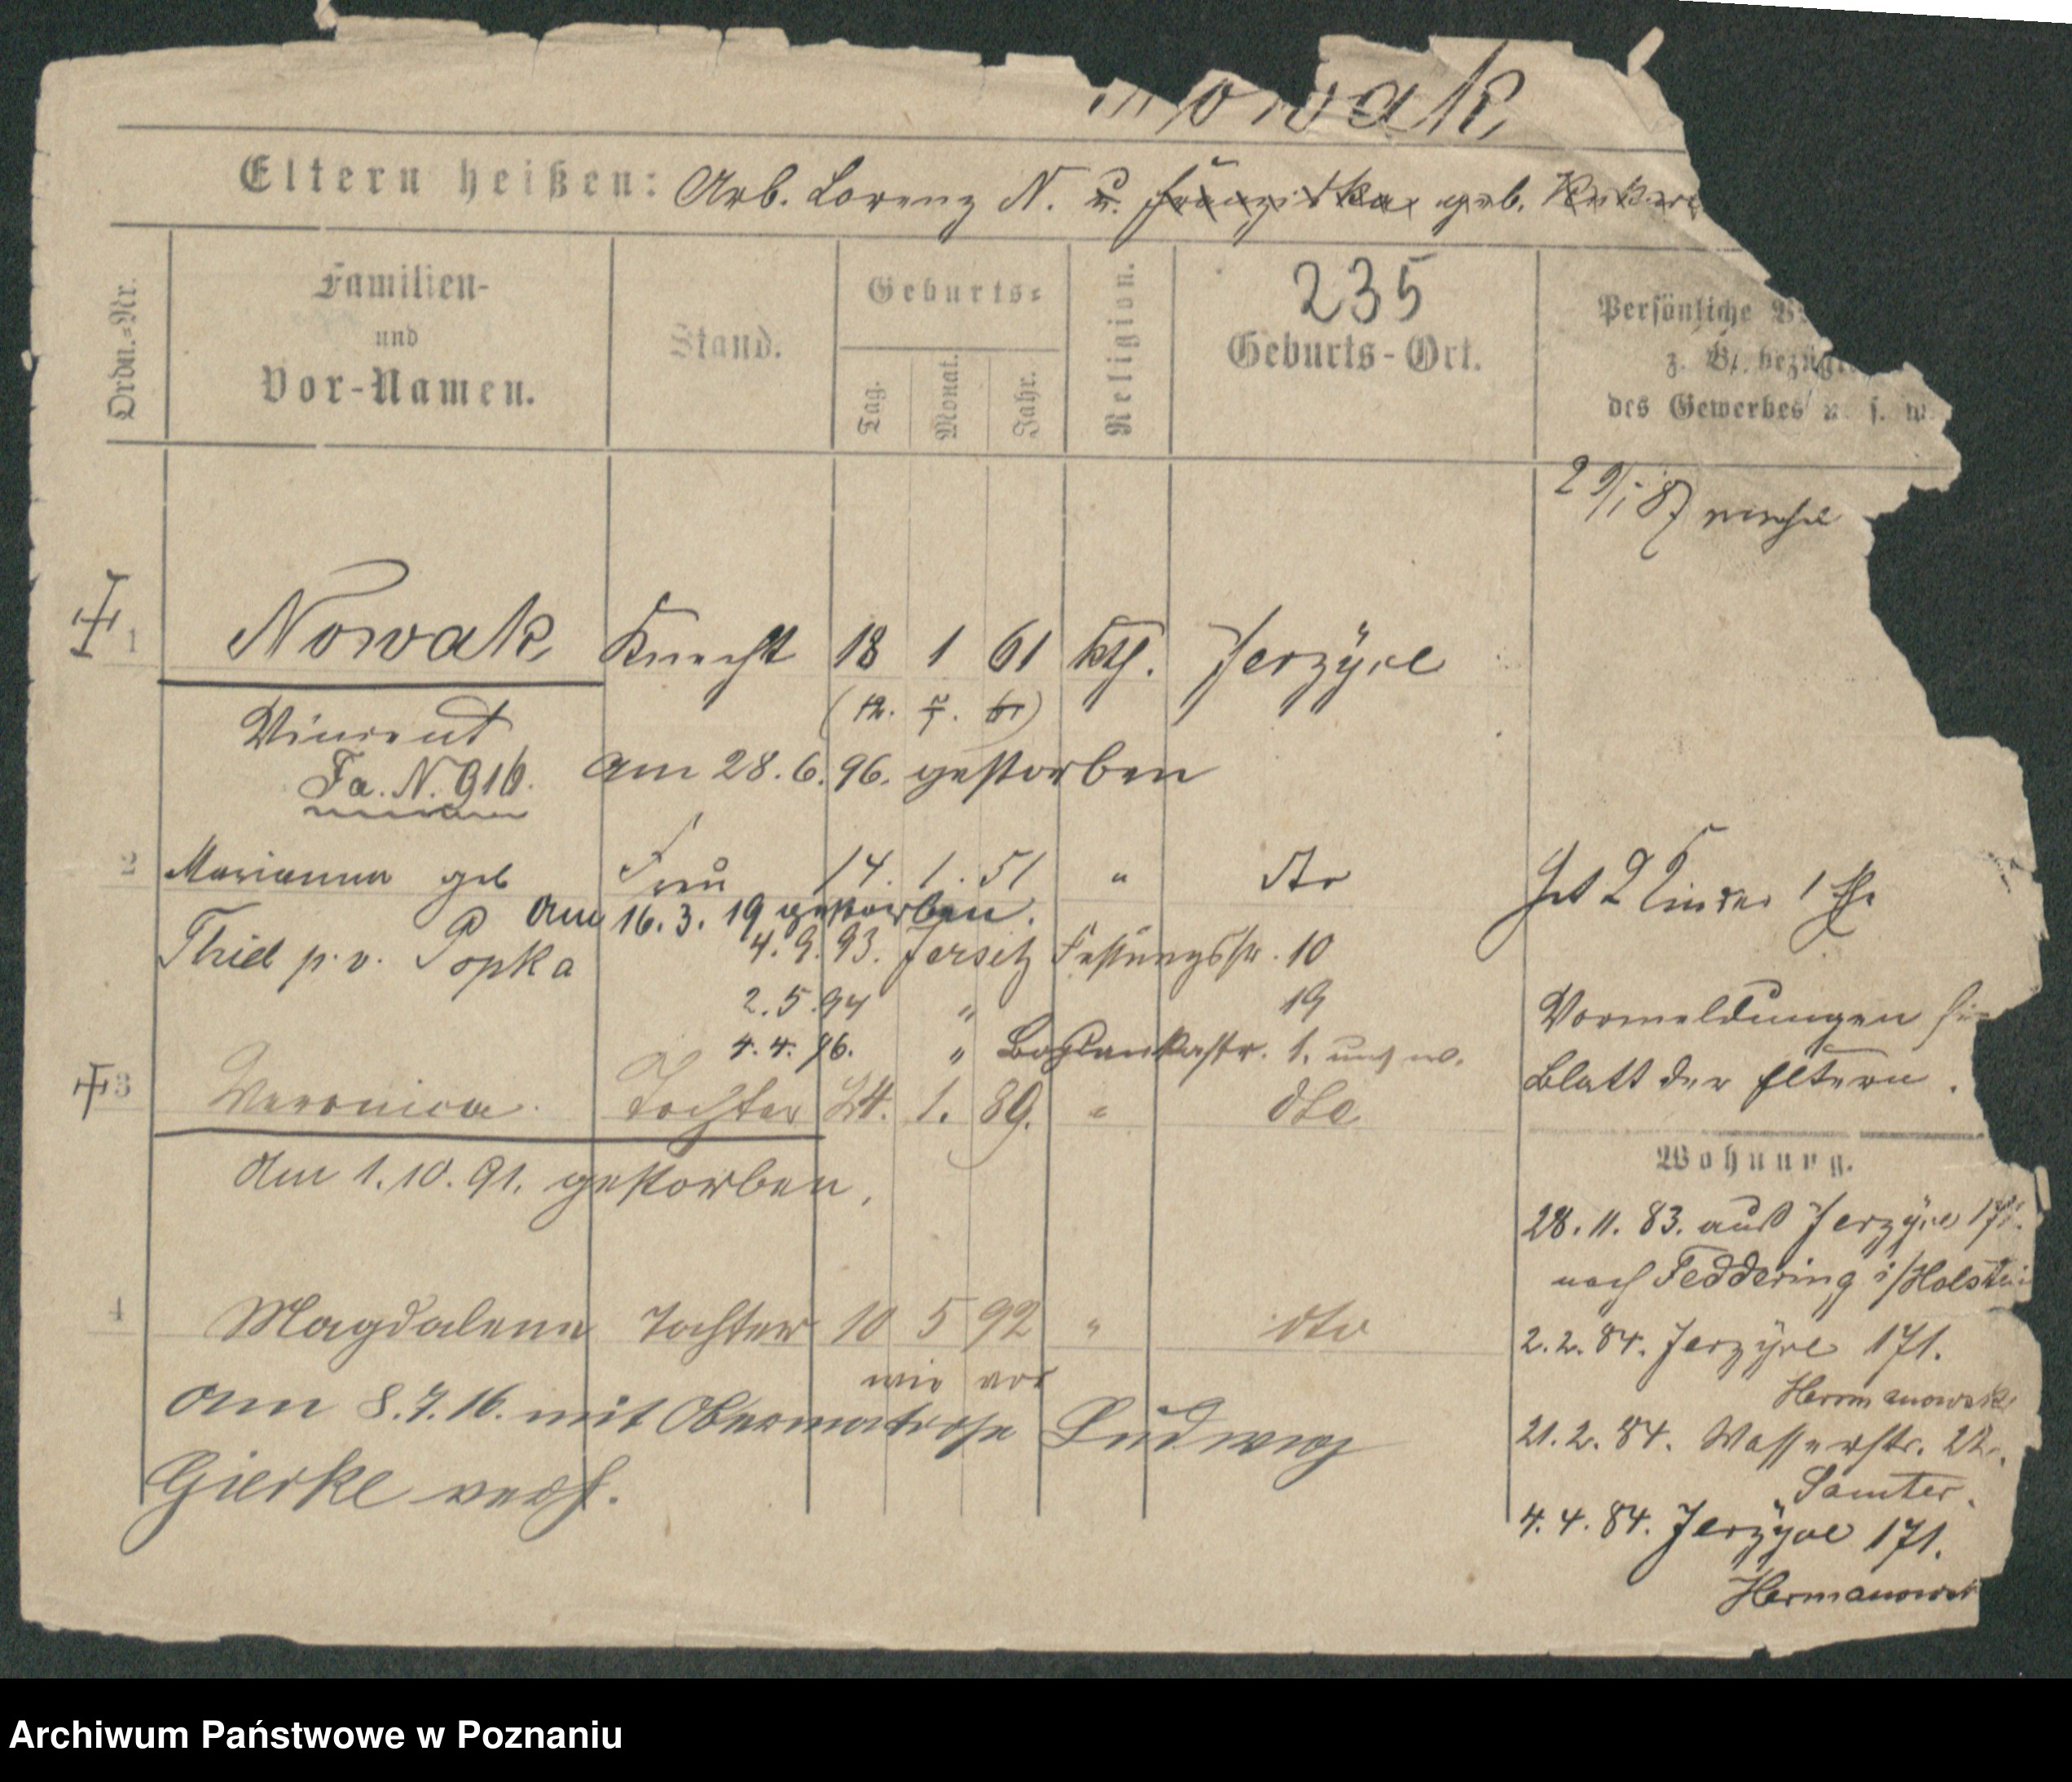 Nowak
Eltern heißen: Arb. Lorenz N. u. Franziska geb.
Ordn.=Nr.
Familien-
und
Vor-Namen.
Stand.
Geburts=
Tag.
Monat.
Jahr.
Religion.
235
Geburts-Ort.
Persönliche
z. B. bezügl
des Gewerbes u. s. w.
29/1 87
1 Nowak Knecht 18 1 61 kth. Jerzyce
(12. 7. 61)
Vincent
Fa. N. 916. am 28.6.96. gestorben
2 Marianna geb Frau 14. 1. 51 " dto
Hat 2 Kinder 1 Ehe
am 16.3.19 gestorben.
Thiel p. v. Popka 4.9.93. Jersitz Festungsstr. 10
2.5.94 " 19
4.4.96. " 1.
Vormeldungen
Blatt der Eltern.
3 Veronica Tochter 24. 1. 89. " dto
am 1.10.91. gestorben.
Wohnung.
28.11.83. aus Jerzyce 171.
nach Feddering i/Holstein
4 Magdalena Tochter 10 5 92 " dto
2.2.84. Jerzyce 171.
wie vor
Hermanowski
am 8.7.16. mit Obermatrose Ludwig
21.2.84. Wasserstr. 22.
Gierke verh.
Samter.
4.4.84. Jerzyce 171.
Hermanowsk
Archiwum Państwowe w Poznaniu